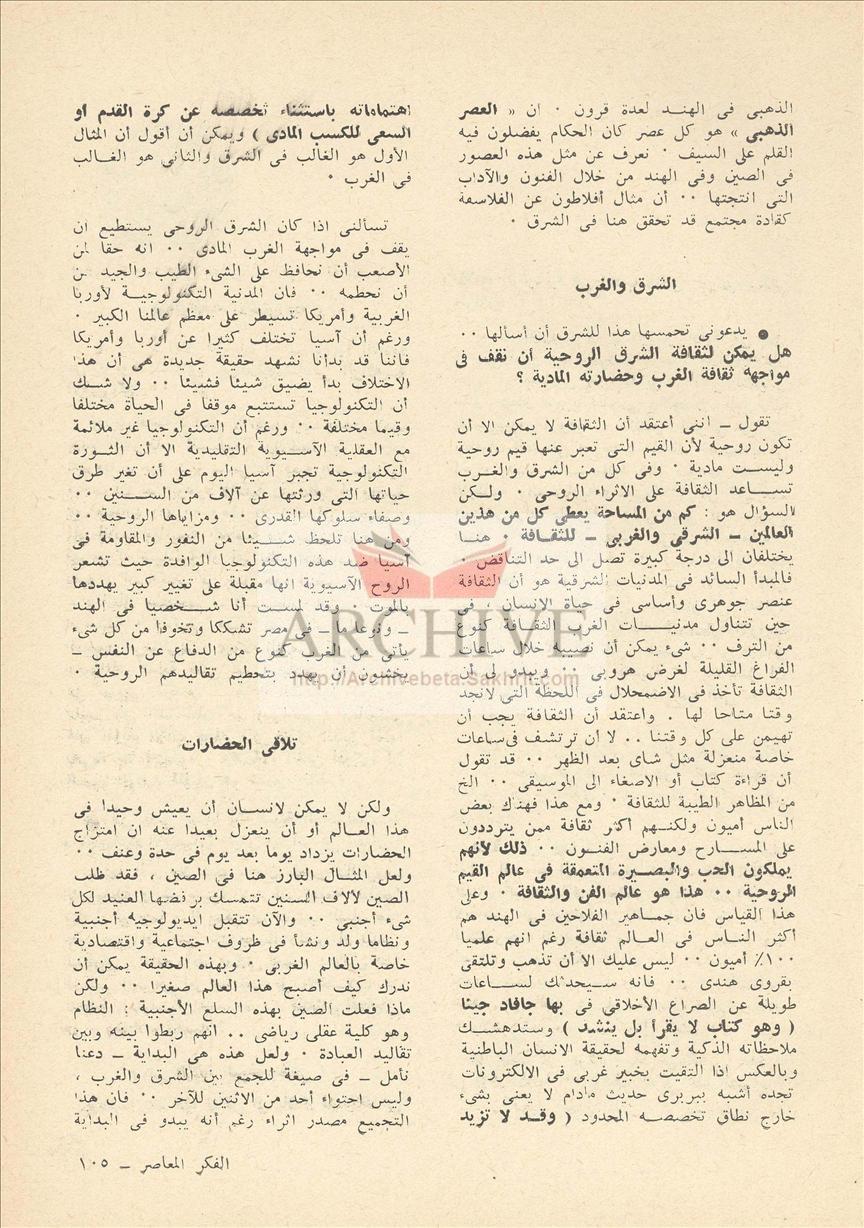 الذهبى فى الهند لعدة قرون ٠ ان « العصر
الذهبى » هو كل عصر كان الحكام يفضلون فيه
القلم على السيف ٠ نعرف عن مثل هذه العصور
فى الصين وفى الهند من خلال الفنون والآداب
التى انتجتها ٠٠ أن مثال أفلاطون عن الفلاسفة
كقادة مجتمع قد تحقق هنا فى الشرق ٠
الشرق والغرب
● يدعونى تحمسها هذا للشرق أن أسألها ٠٠
هل يمكن لثقافة الشرق الروحية أن تقف فى
مواجهة ثقافة الغرب وحضارته المادية ؟
تقول ــ اننى أعتقد أن الثقافة لا يمكن الا أن
تكون روحية لأن القيم التى تعبر عنها قيم روحية
وليست مادية ٠ وفى كل من الشرق والغرب
تساعد الثقافة على الاثراء الروحى ٠ ولكن
السؤال هو : كم من المساحة يعطى كل من هذين
العالمين ــ الشرقى والغربى ــ للثقافة ٠ هنا
يختلفان الى درجة كبيرة تصل الى حد التناقض ٠
فالمبدأ السائد فى المدنيات الشرقية هو أن الثقافة
عنصر جوهرى وأساسى فى حياة الانسان ، فى
حين تتناول مدنيات الغرب الثقافة كنوع
من الترف ٠٠ شىء يمكن أن نصيبه خلال ساعات
الفراغ القليلة لغرض هروبى ٠٠ ويبدو لى أن
الثقافة تأخذ فى الاضمحلال فى اللحظة التى لانجد
وقتا متاحا لها . واعتقد أن الثقافة يجب أن
تهيمن على كل وقتنا .. لا أن ترتشف فى ساعات
خاصة منعزلة مثل شاى بعد الظهر ٠٠ قد تقول
أن قراءة كتاب أو الاصغاء الى الموسيقى ٠٠ الخ
من المظاهر الطيبة للثقافة ٠ ومع هذا فهناك بعض
الناس أميون ولكنهم أكثر ثقافة ممن يترددون
على المسارح ومعارض الفنون ٠٠ ذلك لأنهم
يملكون الحب والبصيرة المتعمقة فى عالم القيم
الروحية ٠٠ هذا هو عالم الفن والثقافة ٠ وعلى
هذا القياس فان جماهير الفلاحين فى الهند هم
أكثر الناس فى العالم ثقافة رغم انهم علميا
١٠٠٪ أميون ٠٠ ليس عليك الا أن تذهب وتلتقى
بقروى هندى ٠٠ فانه سيحدثك لساعات
طويلة عن الصراع الأخلاقى فى بها جافاد جيتا
( وهو كتاب لا يقرأ بل ينشد ) وستدهشك
ملاحظاته الذكية وتفهمه لحقيقة الانسان الباطنية
وبالعكس اذا التقيت بخبير غربى فى الالكترونات
تجده أشبه ببربرى حديث مادام لا يعنى بشىء
خارج نطاق تخصصه المحدود ( وقد لا تزيد
اهتماماته باستثناء تخصصه عن كرة القدم او
السعى للكسب المادى ) ويمكن أن أقول أن المثال
الأول هو الغالب فى الشرق والثانى هو الغالب
فى الغرب ٠
تسألنى اذا كان الشرق الروحى يستطيع ان
يقف فى مواجهة الغرب المادى ٠٠ انه حقا لمن
الأصعب أن نحافظ على الشىء الطيب والجيد من
أن نحطمه ٠٠ فان المدنية التكنولوجية لأوربا
الغربية وأمريكا تسيطر على معظم عالمنا الكبير ٠
ورغم أن آسيا تختلف كثيرا عن أوربا وأمريكا
فاننا قد بدأنا نشهد حقيقة جديدة هى أن هذا
الاختلاف بدأ يضيق شيئا فشيئا ٠٠ ولا شك
أن التكنولوجيا تستتبع موقفا فى الحياة مختلفا
وقيما مختلفة ٠٠ ورغم أن التكنولوجيا غير ملائمة
مع العقلية الآسيوية التقليدية الا أن الثورة
التكنولوجية تجبر آسيا اليوم على أن تغير طرق
حياتها التى ورثتها عن آلاف من السنين ٠٠
وصفاء سلوكها القدرى ٠٠ ومزاياها الروحية ٠٠
ومن هنا تلحظ شيئا من النفور والمقاومة فى
آسيا ضد هذه التكنولوجيا الوافدة حيث تشعر
الروح الآسيوية انها مقبلة على تغيير كبير يهددها
بالموت ٠ وقد لمست أنا شخصيا فى الهند
ــ ونوعا ما ــ فى مصر تشككا وتخوفا من كل شىء
يأتى من الغرب كنوع من الدفاع عن النفس ــ
يخشون أن يهدد بتحطيم تقاليدهم الروحية ٠
تلاقى الحضارات
ولكن لا يمكن لانسان أن يعيش وحيدا فى
هذا العالم أو أن ينعزل بعيدا عنه ان امتزاج
الحضارات يزداد يوما بعد يوم فى حدة وعنف ٠٠
ولعل المثال البارز هنا فى الصين ، فقد ظلت
الصين لآلاف السنين تتمسك برفضها العنيد لكل
شىء أجنبى ٠٠ والآن تتقبل ايديولوجية أجنبية
ونظاما ولد ونشأ فى ظروف اجتماعية واقتصادية
خاصة بالعالم الغربى ٠ وبهذه الحقيقة يمكن أن
ندرك كيف أصبح هذا العالم صغيرا ٠٠ ولكن
ماذا فعلت الصين بهذه السلع الأجنبية : النظام
وهو كلية عقلى رياضى .. انهم ربطوا بينه وبين
تقاليد العبادة ٠ ولعل هذه هى البداية ــ دعنا
نأمل ــ فى صيغة للجمع بين الشرق والغرب ،
وليس احتواء أحد من الاثنين للآخر ٠٠ فان هذا
التجميع مصدر اثراء رغم أنه يبدو فى البداية
الفكر المعاصر ــ ١٠٥
ARCHIVE
http://Archivebeta.Sakhrit.com